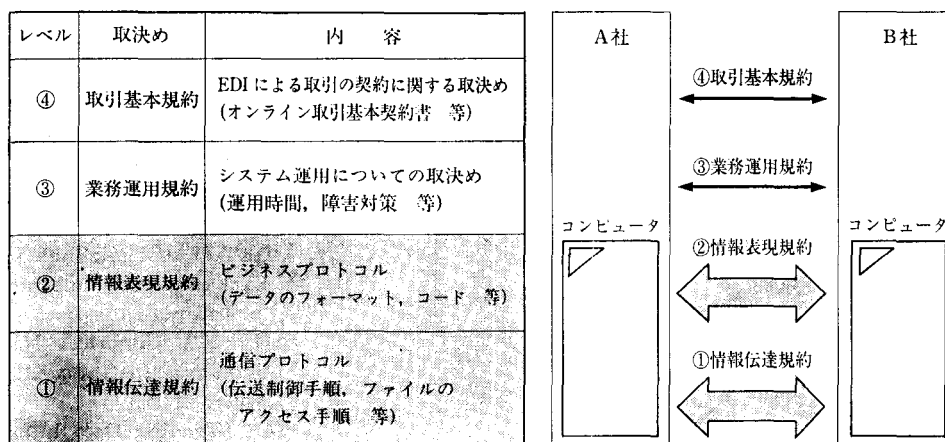 レベル 取決め 内 容
④ 取引基本規約 EDIによる取引の契約に関する取決め
(オンライン取引基本契約書 等)
③ 業務運用規約 システム運用についての取決め
(運用時間,障害対策 等)
② 情報表現規約 ビジネスプロトコル
(データのフォーマット,コード 等)
① 情報伝達規約 通信プロトコル
(伝送制御手順,ファイルの
アクセス手順 等)
A社 B社
④取引基本規約
③業務運用規約
コンピュータ コンピュータ
②情報表現規約
①情報伝達規約